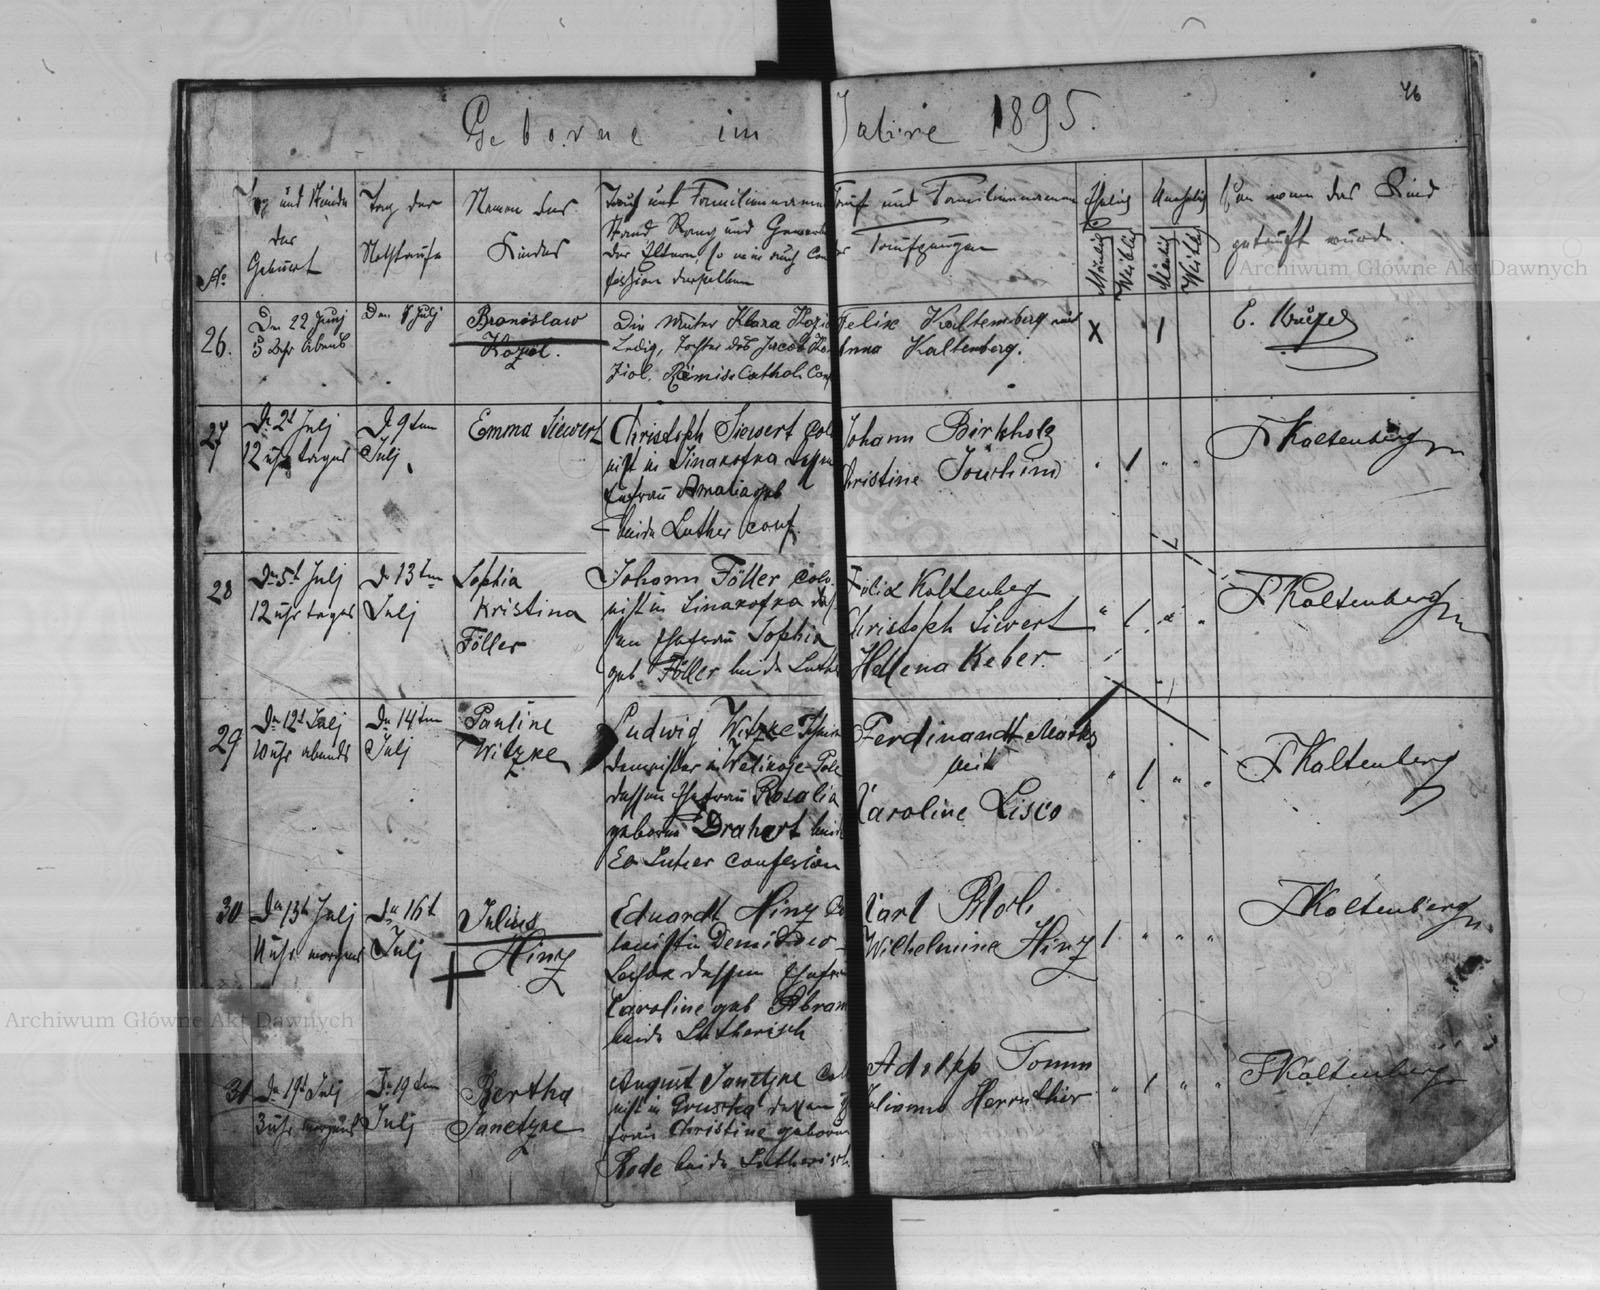 46
Geborne im Jahre 1895.
No
Tag und Stunde
der
Geburt
Tag der
Nothtaufe
Namen des
Kindes
Tauf und Familienname
Stand Rang und Gewerbe
der Eltern, so wie auch Con
fession derselben
Tauf und Familiennamen der
Taufzeugen
Ehelich
Männlich
Weiblich
Unehelich
Männlich
Weiblich
Von wem das Kind
getauft wurde.
26.
Den 22 Junj
5 Uhr Abends
Den Julj
Bronislaw
Koziol.
Die Mutter Klara Kozio
Ledig, Tochter des Jacob Ko
ziol. Römisch Cathol. Conf
Felix Kaltenberg mit
Anna Kaltenberg.
X 1
27
Dn 2t Julj
12 uhr tages
D 9ten
Julj
Emma Siewert
Christoph Siewert Colo
nist in Sinarofka dessen
Ehefrau Amalia geb
beide Luther Conf.
Johann Birkholz
Christine
" 1 " "
F Kaltenberg
28
Dn 5t Julj
12 uhr tages
D 13ten
Julj
Sophia
Kristina
Föller
Johann Föller Colo
nist in Sinarofka des
sen Ehefrau Sophia
geb Föller beide Luthe
Felix Kaltenberg
Christoph Siewert
Hellena Keber.
" 1 " "
F Kaltenberg
29
Dn 12t Julj
10 uhr abends
Dn 14ten
Julj
Pauline
Witzke
Ludwig Witzke Schmie
demeister in
dessen Ehefrau Rosalia
geborne Drahert beide
Ev Luther Confesion
Ferdinandt
mit
Karoline Lisco
" 1 " "
F Kaltenberg
30
Dn 13t Julj
uhr morgens
Dn 16t
Julj
Julius
Hinz
Eduardt Hinz Co
lonist in
dessen Ehefrau
Caroline geb Abram
beide Lutherisch
Karl
Wilhelmine Hinz
1 " " "
F Kaltenberg
31
Dn 19t Julj
3 uhr morgens
Dn 19ten
Julj
Bertha
Janetzke
August Janetzke Colo
nist in dessen Eh
frau Christine geborne
Rode beide Lutherisch
Adolpp Tomm
" 1 " "
F Kaltenberg
Archiwum Główne Akt Dawnych
Archiwum Główne Akt Dawnych